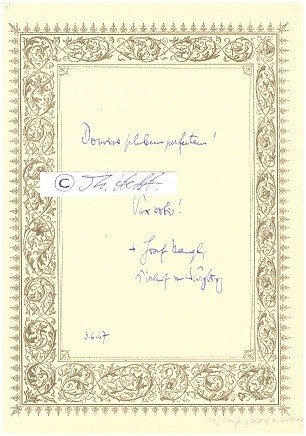 Domino plebem perfectam!
© Th.
Pax vobis!
+ Josef Stangl,
Bischof von Würzburg
3.6.67